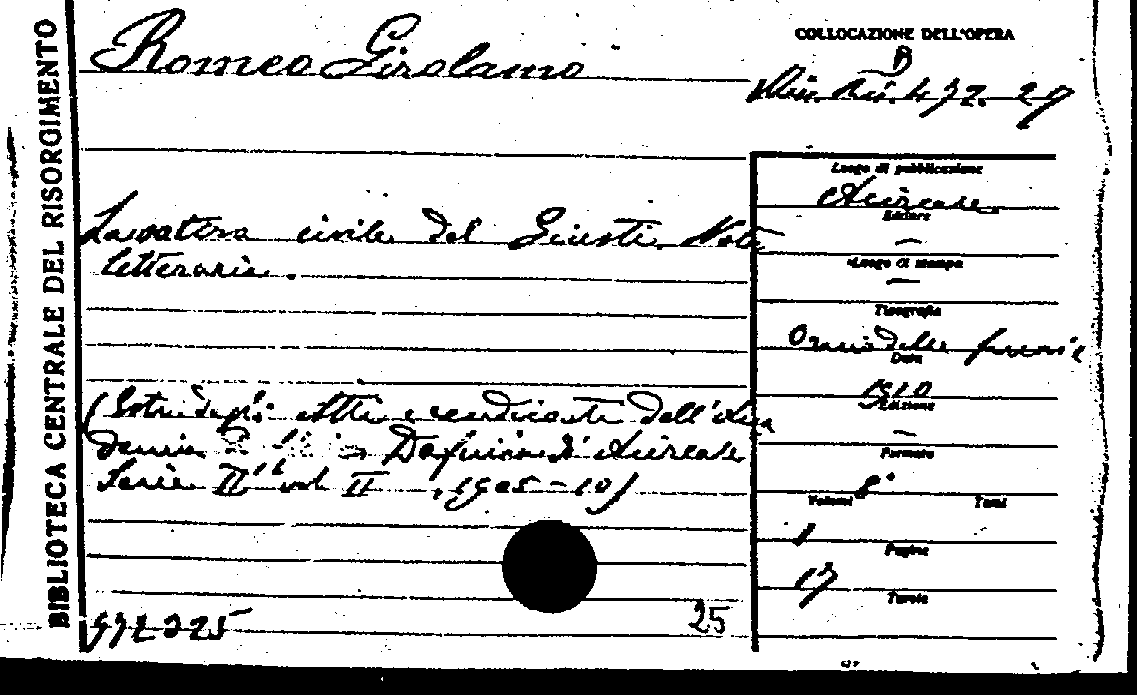 BIBLIOTECA CENTRALE DEL RISORGIMENTO
Romeo Girolamo
COLLOCAZIONE DELL'OPERA
B
Min. Ris. 472. 27
La satira civile del Giusti. Note
letterarie.
(Estr. dagli: Atti e rendiconti dell'Acca
demia Dafnica di Acireale
Serie II vol. II, 1905-10)
Luogo di pubblicazione
Acireale
Editore
—
Luogo di stampa
—
Tipografia
Orario delle ferrovie
Data
1910
Edizione
—
Formato
8°
Volumi
Tomi
1
Pagine
17
Tavole
25